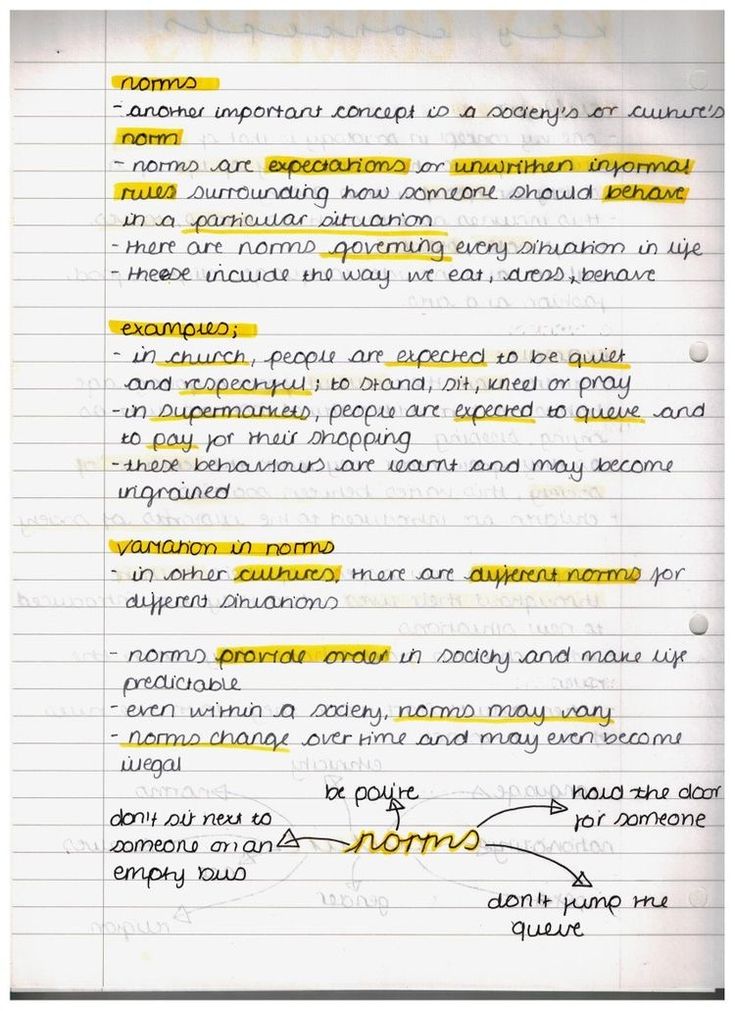 norms
- another important concept is a society's or culture's
norm
- norms are expectations or unwritten informal
rules surrounding how someone should behave
in a particular situation
- there are norms governing every situation in life
- theese include the way we eat, dress, behave
examples;
- in church, people are expected to be quiet
and respectful; to stand, sit, kneel or pray
- in supermarkets, people are expected to queue and
to pay for their shopping
- these behaviours are learnt and may become
ingrained
variation in norms
- in other cultures, there are different norms for
different situations
- norms provide order in society and make life
predictable
- even within a society, norms may vary
- norms change over time and may even become
illegal
be polite
hold the door
for someone
don't sit next to
someone on an
empty bus
norms
don't jump the
queue